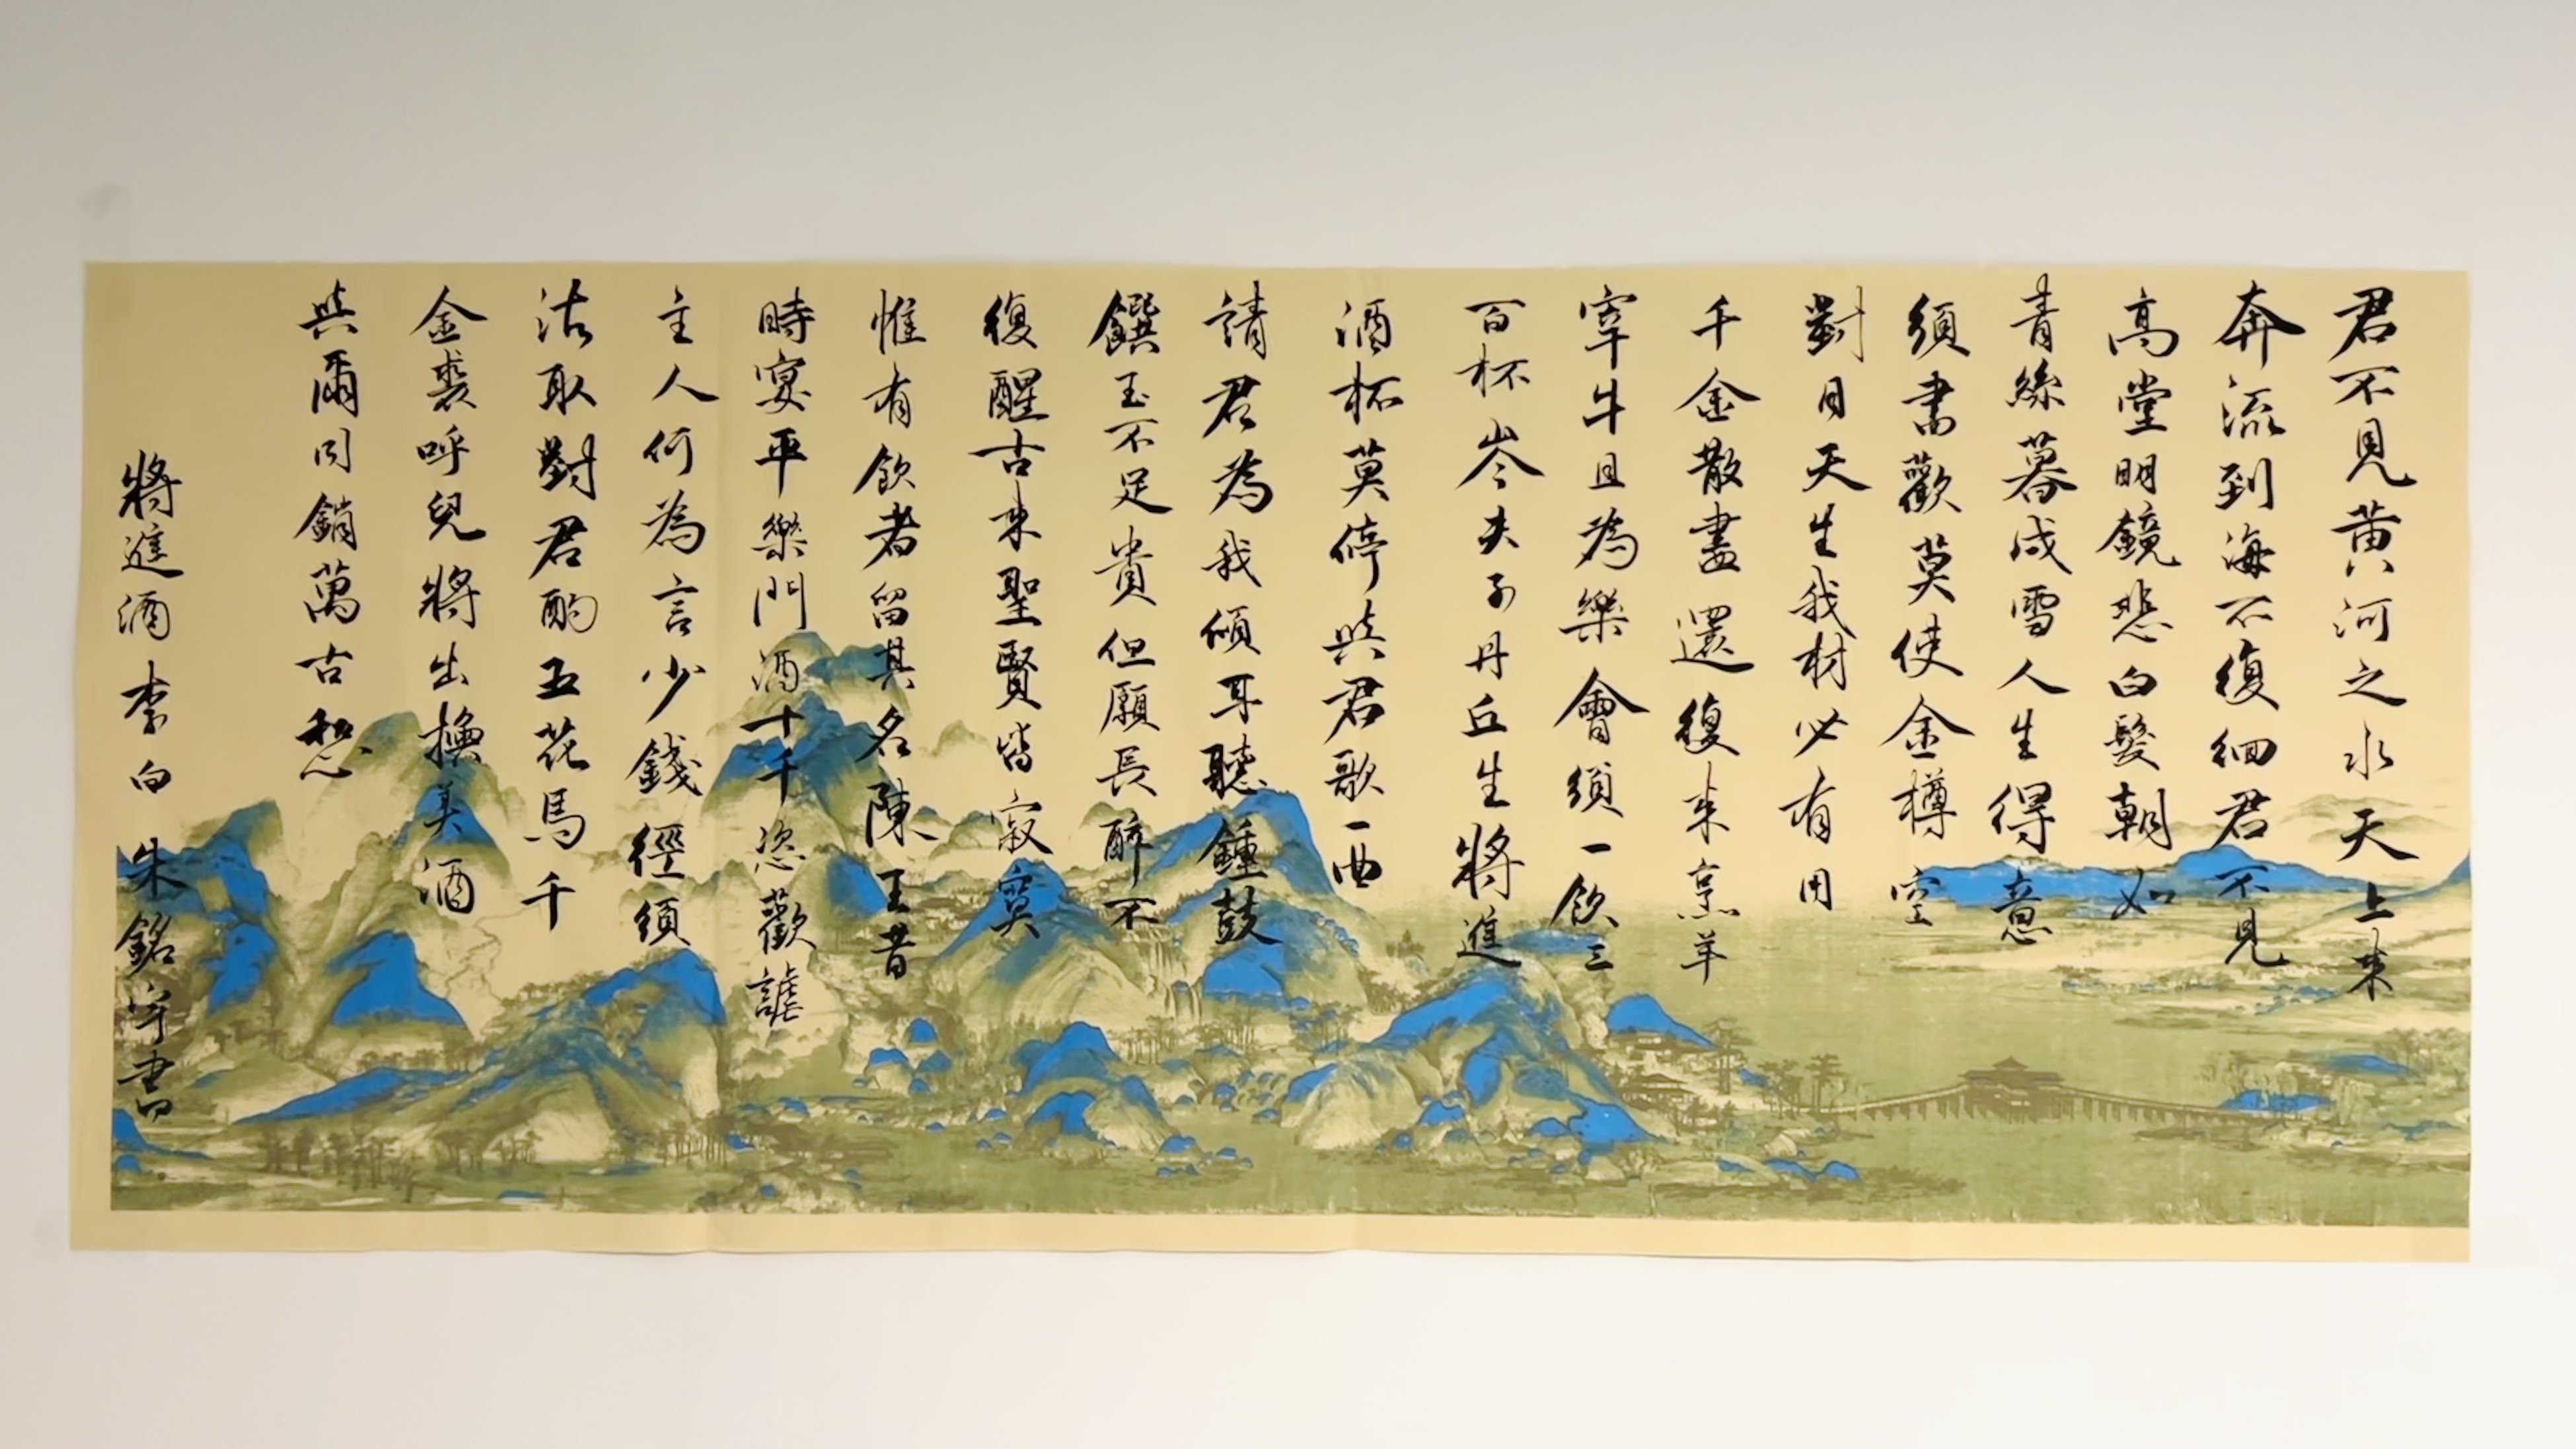 君不見黃河之水天上來
奔流到海不復細君不見
高堂明鏡悲白髮朝如
青絲暮成雪人生得意
須盡歡莫使金樽空
對月天生我材必有用
千金散盡還復來烹羊
宰牛且為樂會須一飲三
百杯岑夫子丹丘生將進
酒杯莫停與君歌一曲
請君為我傾耳聽鍾鼓
饌玉不足貴但願長醉不
復醒古來聖賢皆寂寞
惟有飲者留其名陳王昔
時宴平樂門酒十千恣歡謔
主人何為言少錢徑須
沽取對君酌五花馬千
金裘呼兒將出換美酒
與爾同銷萬古愁
將進酒李白朱銘宇書